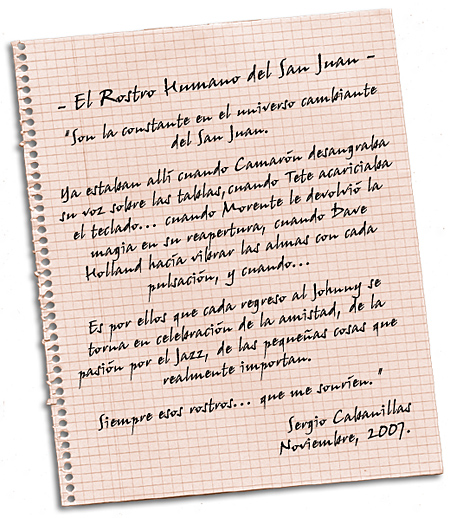 - El Rostro Humano del San Juan -
"Son la constante en el universo cambiante
del San Juan.
Ya estaban allí cuando Camarón desangraba
su voz sobre las tablas, cuando Tete acariciaba
el teclado... cuando Morente le devolvió la
magia en su reapertura, cuando Dave
Holland hacía vibrar las almas con cada
pulsación, y cuando...
Es por ellos que cada regreso al Johnny se
torna en celebración de la amistad, de la
pasión por el Jazz, de las pequeñas cosas que
realmente importan.
Siempre esos rostros... que me sonríen."
Sergio Cabanillas
Noviembre, 2007.